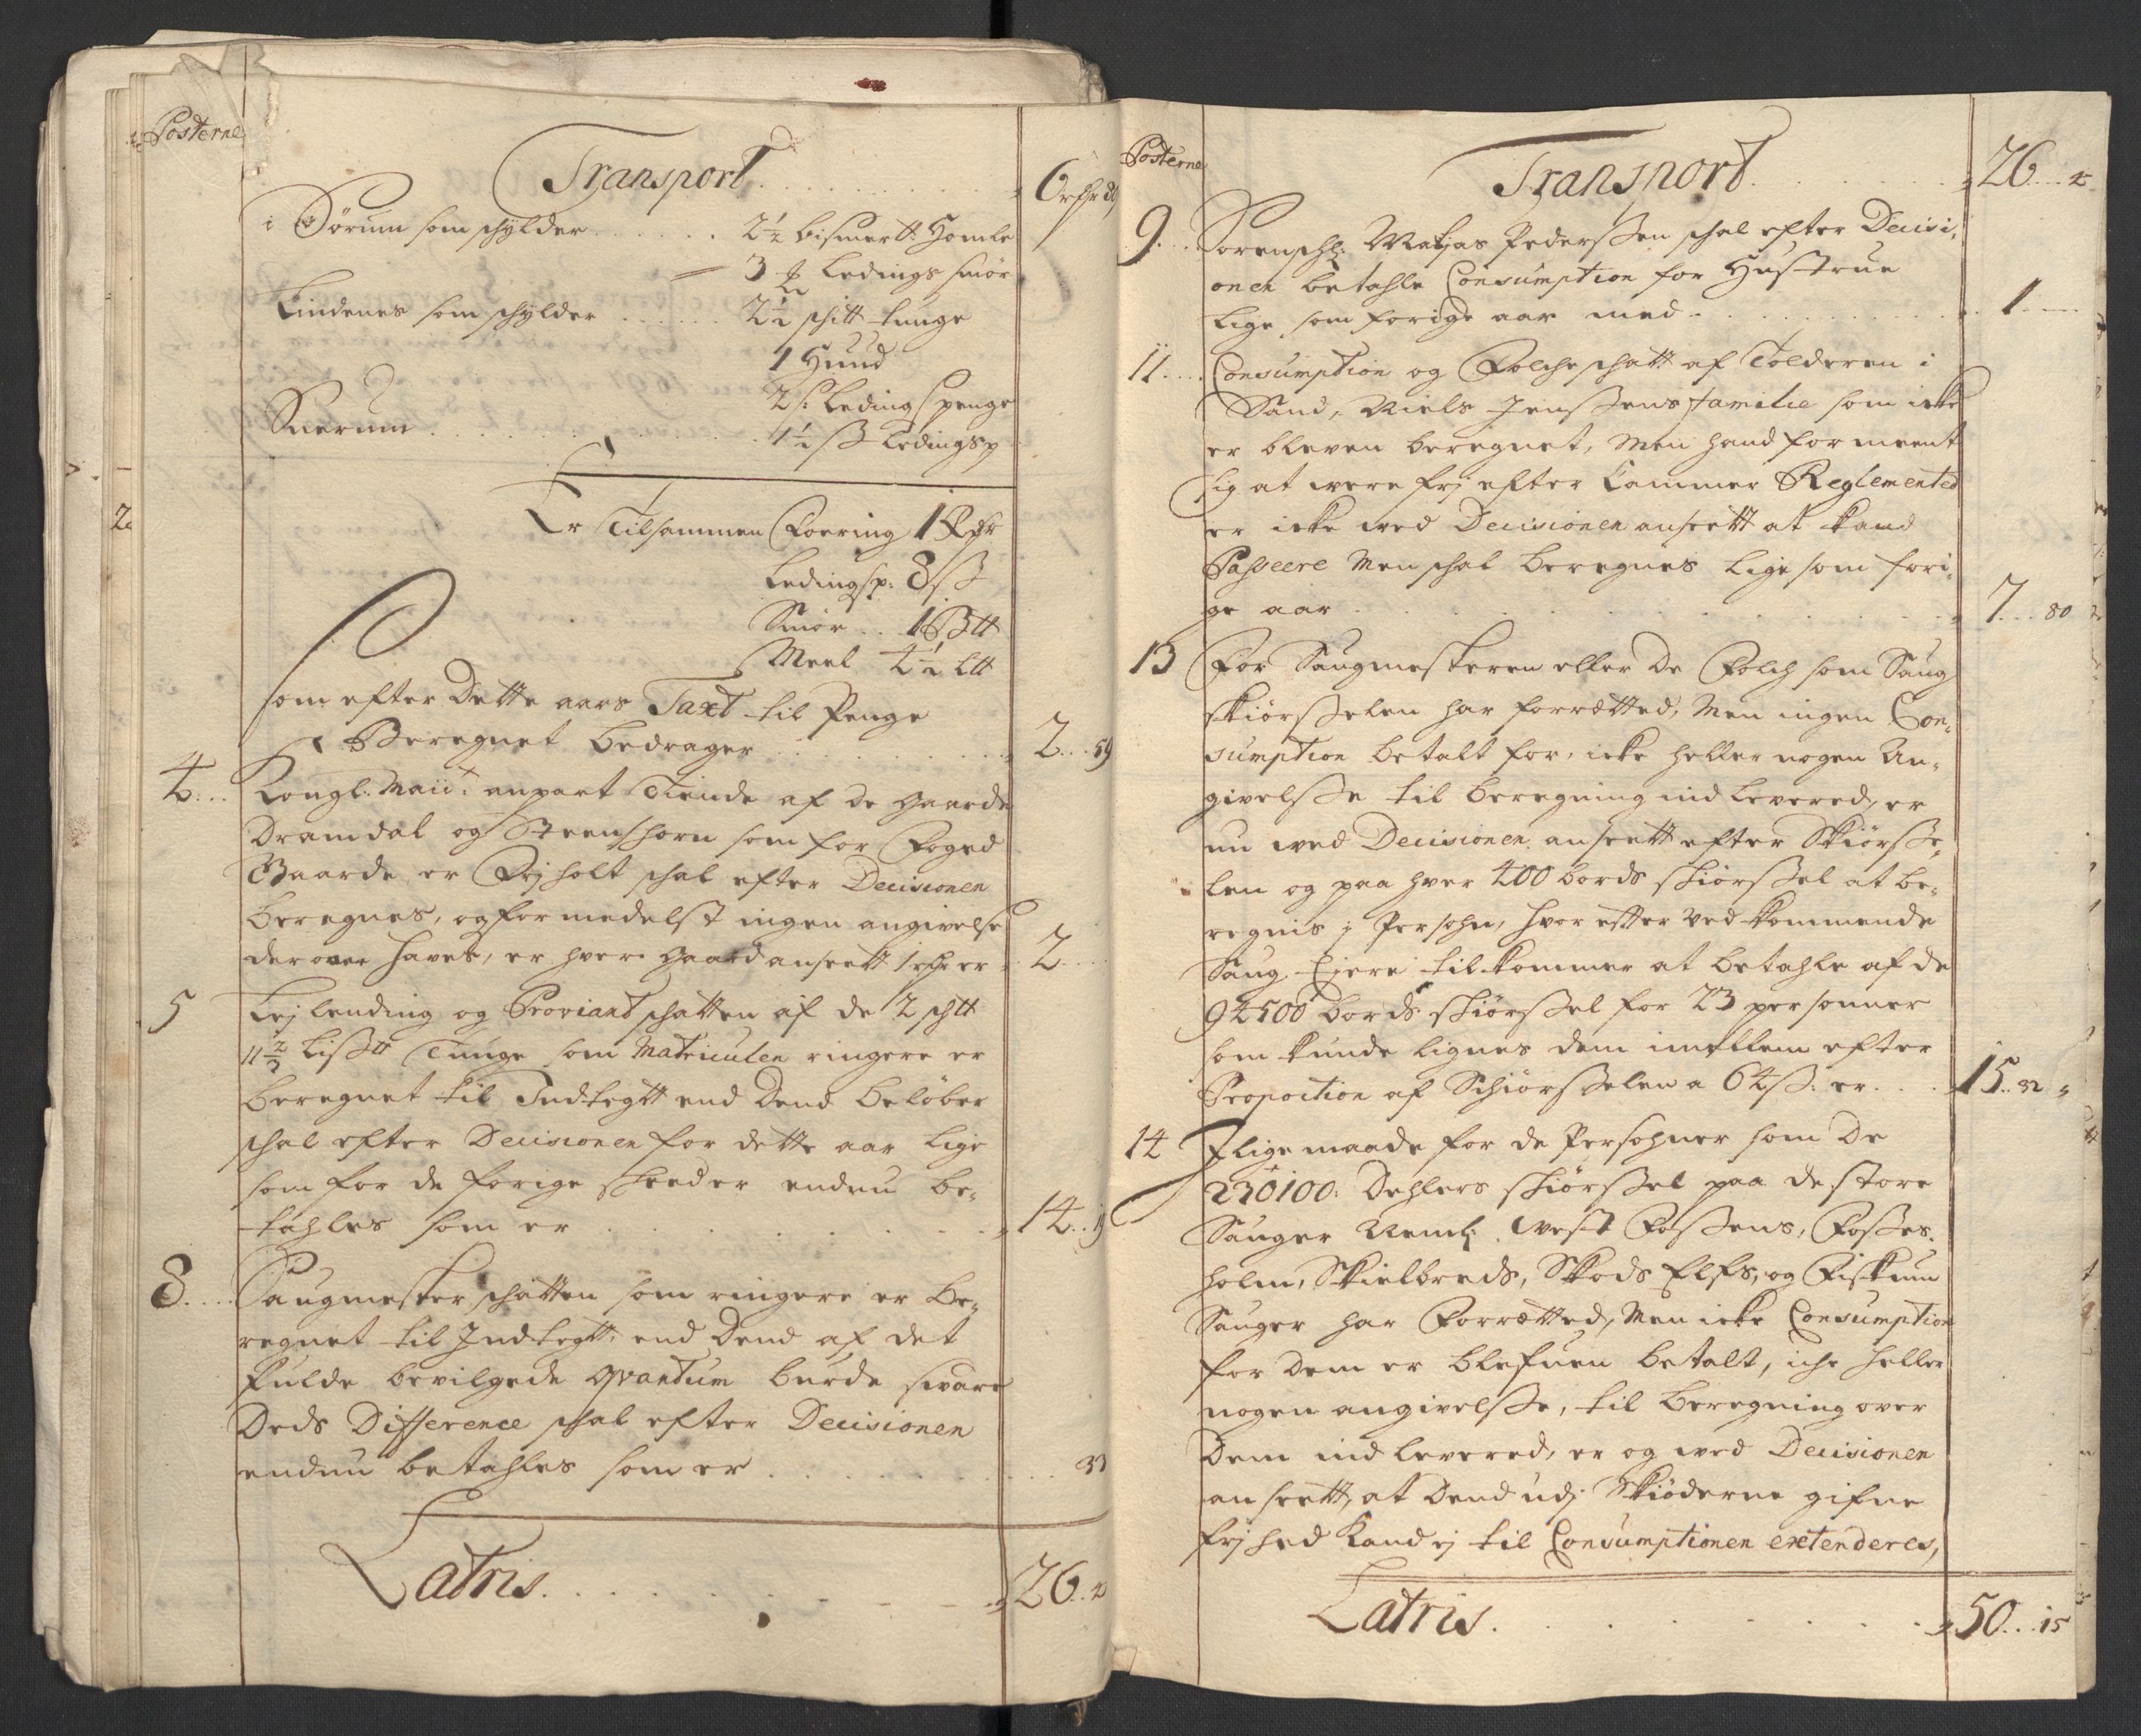 Posterne
Transport
i Sørum som schylder 2½ bismertt: Homle
3 ℔ Ledings smør
Lindenes som schylder 2½ schitt tunge
1 Hund
2 s: Leding Spenge
Suerum 4½ ß Ledingsp
Er Tilsammen Foering 1
Ledingsp: 8 ß
Smør 1
Meel 4½
som efter Dette aars Taxt til Penge
Beregnet bedrager 2 59
4 Kongl: Maii: anpart Tiende af de gaarde
Dramdal og Steenshorn som for Foged
Gaarde er Frj holt schal efter Decisionen
beregnes, og formedelst ingen angivelse
derover haves, er hver gaard anseett 1 er 2
5 Lejlending og Proviant schatten af de 2 schtt
11⅔ Lißtt Tunge som Matriculen ringere er
beregnet til Indtegtt end Dend beløber
schal efter Decisionen for dette aar Lige
som for de forige steeder endnu be-
tahles som er 14
8 Saugmester schatten som ringere er be-
regnet til Indtegtt, end Dend af det
fulde bevilgede qvantum burde svare
Deds Difference schal efter Decisionen
endnu betahles som er 33
Latris 26
Posterne
Transport 26
9 Sorenschl: Matias Pederßen schal efter Decisi-
onen betahle Consumption for Hustrue
Lige som forige aar med 1
11 Consumption og Folcheschatt af Tolderen i
Sand, Niels Jenßens familie som icke
er bleven beregnet, Men hand formeent
sig at were frj efter Cammer Reglemented
er icke wed Decisionen anseett at kand
Paßeere Men schal beregnes Lige som fori-
ge aar 7 80
13 For Saugmesteren eller De Folch som Saug
skiørßelen har forrætted, Men ingen Con-
sumption betalt for, icke heller nogen An-
givelße til beregning ind levered, er
nu wed Decisionen anseett efter Skiørße-
len og paa hver 400 bords skiørßel at be-
regnis j Persohn, hvorefter ved kommende
Saug Eiere til kommer at betahle af de
94500 bords skiørßel for 23 personner
som kunde Lignes dem imellem efter
Proportion af Schiørßelen a 64 ß: er 15 32
14 I lige maade for de Persohner som De
230100: Dehlers skiørßel paa de store
Sauger Neml: west Foßens, Foßes-
holm, Skielbreds, Skods Elfs, og Fiskum
Sauger har Forrætted, Men icke Consumption
for Dem er blefuen betalt, iche heller
nogen angivelße, til beregning over
Dem ind levered, er og wed Decisionen
anseett, at Dend udj Skiøderne gifne
frjhed kand ej til Consumptionen extenderes,
Latris 50 15